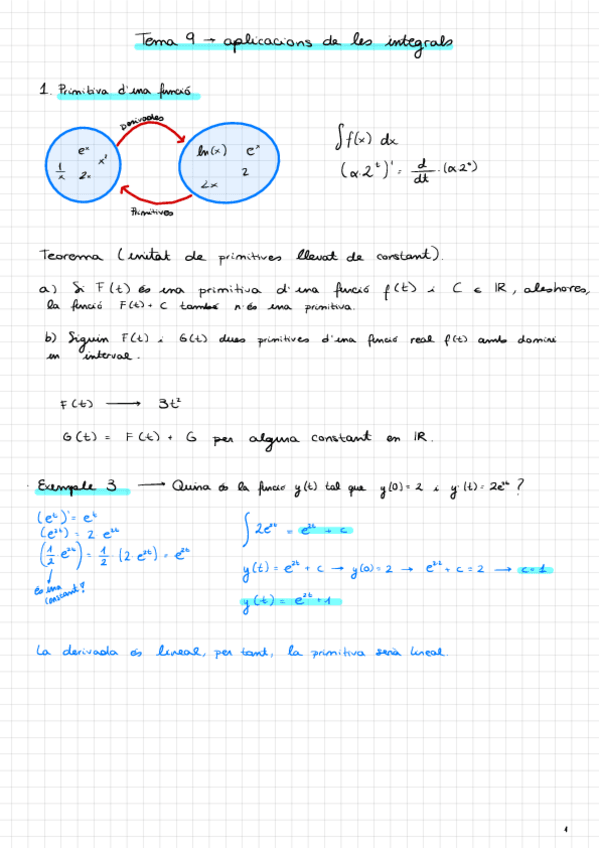 Tema 9 → aplicacions de les integrals
1. Primitiva d'una funció
Derivades
e^x
1/x
x²
2x
ln(x)
e^x
2
2x
Primitives
∫f(x) dx
(α·2^t)' = d/dt · (α2^t)
Teorema (unitat de primitives llevat de constant).
a) Si F(t) és una primitiva d'una funció f(t) i C ∈ IR, aleshores,
la funció F(t)+C també n'és una primitiva.
b) Siguin F(t) i G(t) dues primitives d'una funció real f(t) amb domini
en interval.
F(t) ⟶ 3t²
G(t) = F(t) + G per alguna constant en IR.
Exemple 3 ⟶ Quina és la funció y(t) tal que y(0)=2 i y'(t)=2e^2t ?
(e^t)' = e^t
(e^2t) = 2·e^2t
(1/2 e^2t) = 1/2 · (2·e^2t) = e^2t
és una
constant!
∫2e^2t = e^2t + c
y(t) = e^2t + c → y(0)=2 → e^2·2 + c = 2 → c=1
y(t) = e^2t + 1
La derivada és lineal, per tant, la primitiva serà lineal.
1